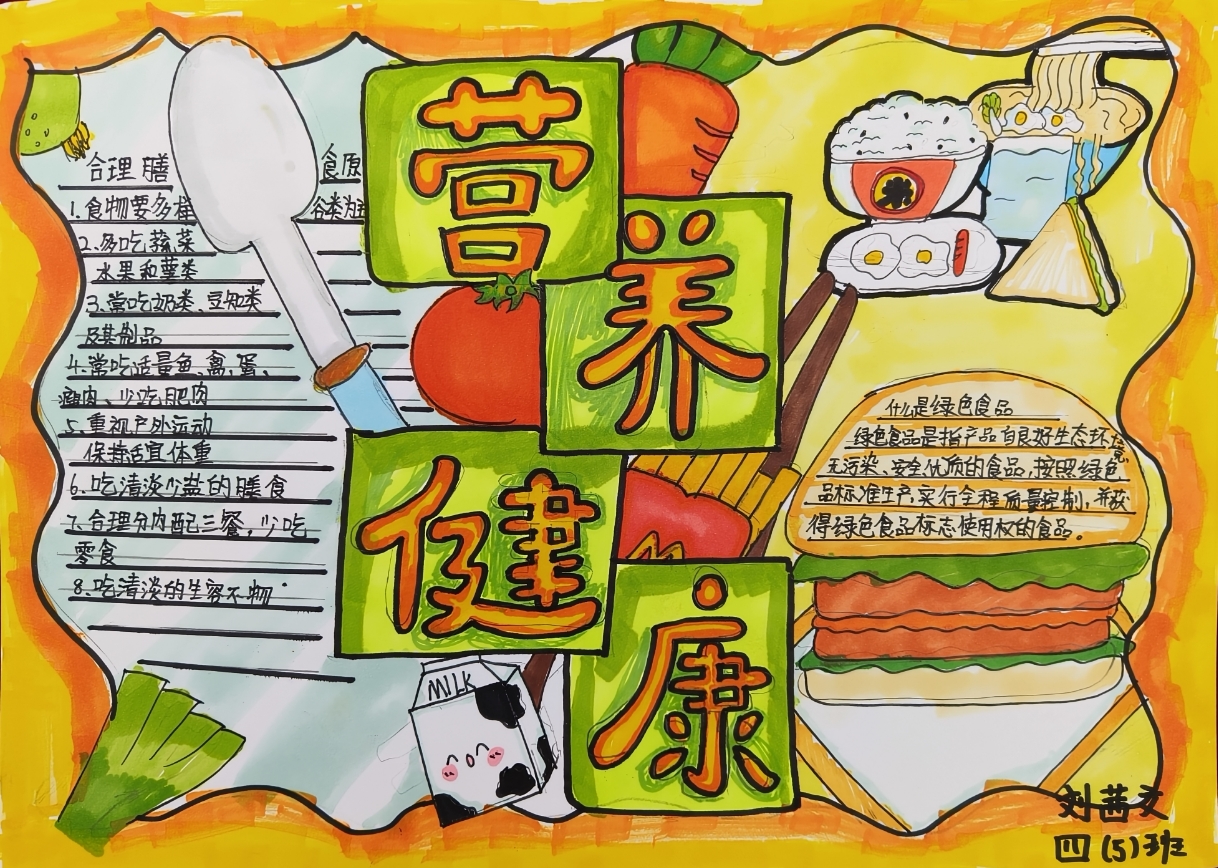 营
养
健
康
合理膳 食原
1.食物要多样 谷类为
2.多吃蔬菜
水果和薯类
3.常吃奶类、豆知类
及其制品
4.常吃适量鱼、禽、蛋、
瘦肉、少吃肥肉
5.重视户外运动
保持适宜体重
6.吃清淡少盐的膳食
7.合理分内配三餐,少吃
零食
8.吃清淡的生容不物
MILK
米
什么是绿色食品
绿色食品是指产品自良好生态环境,
无污染、安全优质的食品,按照绿色
品标准生产,实行全程质量控制,并获
得绿色食品标志使用权的食品。
刘茜文
四(5)班